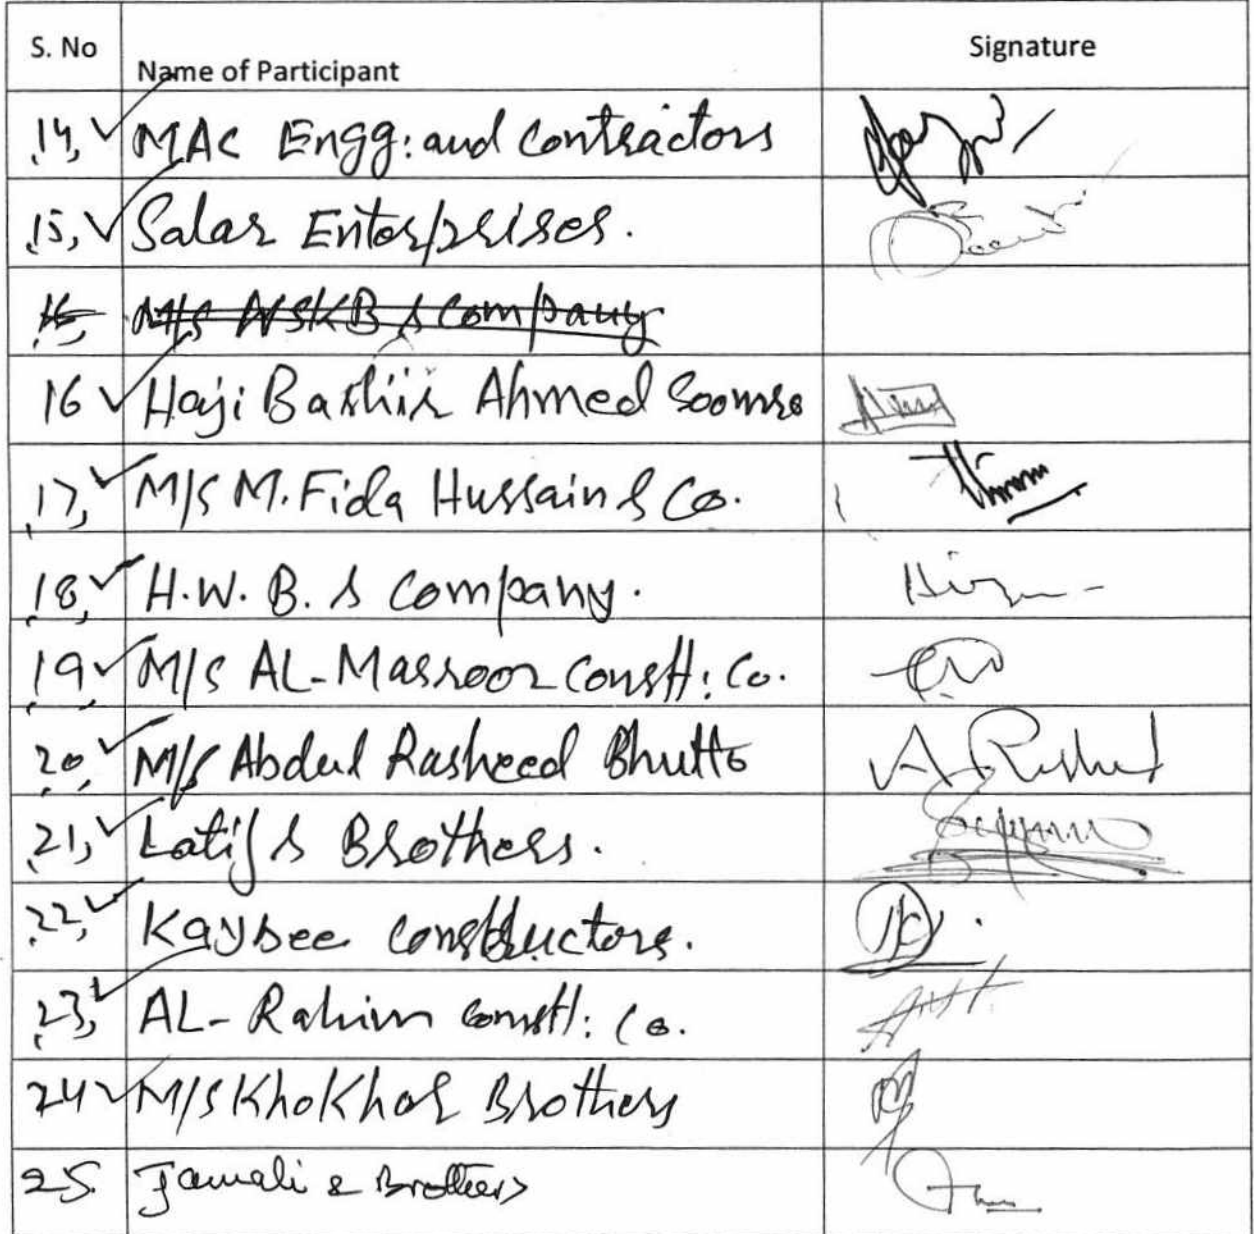 S. No Name of Participant Signature
14, MAC Engg: and Contractors
15, Salar Enterprises.
16, M/S WSKB & Company
16 Haji Bashir Ahmed Soomro
17, M/S M. Fida Hussain & Co.
18, H.W.B. & Company.
19, M/S AL-Masroor Constt: Co.
20, M/S Abdul Rasheed Bhutto A Rashed
21, Latif & Brothers.
22, Kaybee Constructors.
23, AL-Rahim Constt: Co.
24 M/S Khokhar Brothers
25. Jamali & Brothers